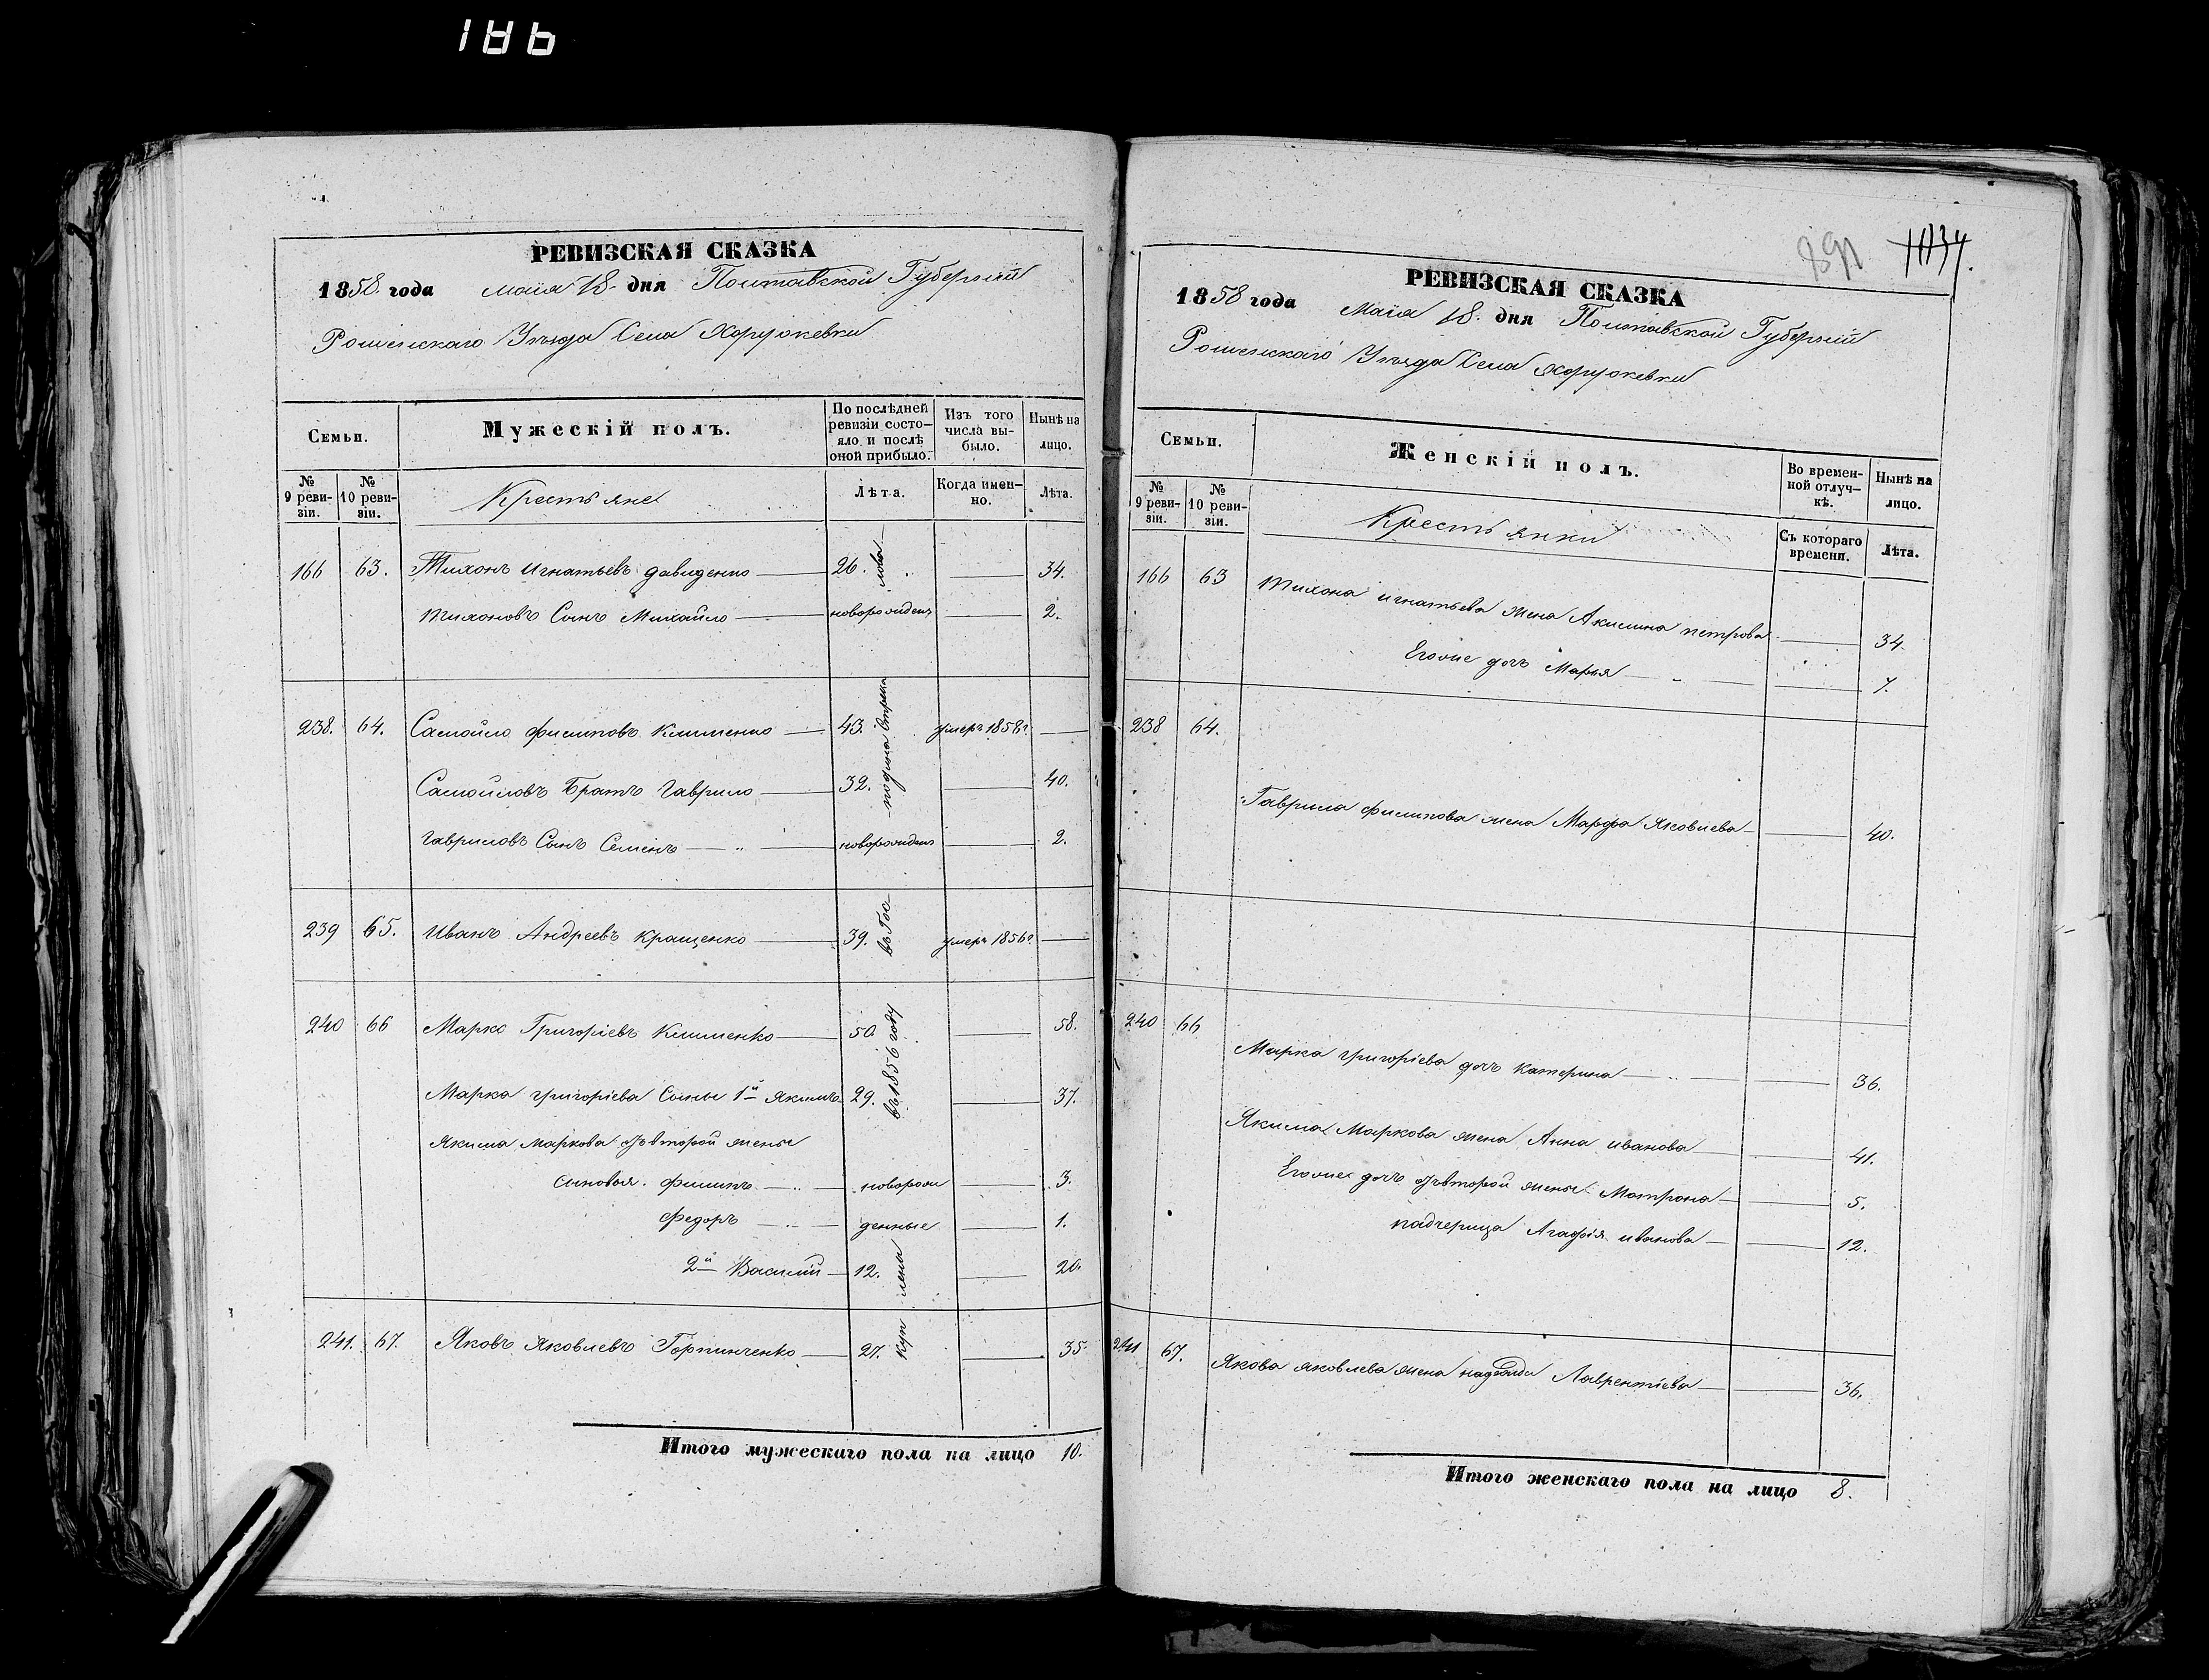 186
РЕВИЗСКАЯ СКАЗКА
1858 года маія 18 дня Полтавской Губерніи
Роменскаго Уѣзда Села Хоружевки
Семьи.
Мужескій полъ.
По послѣдней ревизіи состояло и послѣ оной прибыло.
Изъ того числа выбыло.
Нынѣ на лицо.
№ 9 ревизіи.
№ 10 ревизіи.
Крестьяне
Лѣта.
Когда именно.
Лѣта.
166 63. Тихонъ Игнатьевъ Давиденко 26. 34.
Тихоновъ Сынъ Михайло новорожденъ 2.
238. 64. Самойло Филиповъ Клименко 43. умеръ 1858г.
Самойловъ Братъ Гаврило 32. 40.
Гавриловъ Сынъ Семенъ новорожденъ 2.
239 65. Иванъ Андреевъ Кращенко 39. умеръ 1856г.
240 66 Марко Григоріевъ Клименко 50. 58.
Марка Григоріева Сыны 1й Якимъ 29. 37.
Якима Маркова отъ второй жены
сыновья. Филипъ новорож 3.
Федоръ денные 1.
2й Василий 12. 20.
241. 67. Яковъ Яковлевъ Горпинченко 27. 35.
въ 1856 году
куплена
Итого мужескаго пола на лицо 10.
891 1034.
РЕВИЗСКАЯ СКАЗКА
1858 года Маія 18. дня Полтавской Губерніи
Роменскаго Уѣзда Села Хоружевки
Семьи.
Женскій полъ.
Во временной отлучкѣ.
Нынѣ на лицо.
№ 9 ревизіи.
№ 10 ревизіи.
Крестьянки
Съ котораго времени.
Лѣта.
166 63 Тихона Игнатьева жена Акилина Петрова 34.
Егоже дочь Марья 7.
238 64.
Гаврила Филипова жена Марфа Яковлева 40.
240 66
Марка Григоріева дочь Катерина 36.
Якима Маркова жена Анна Иванова 41.
Егоже дочь отъ второй жены Мотрона 5.
падчерица Агафія Иванова 12.
241 67. Якова Яковлева жена Надежда Лаврентіева 36.
Итого женскаго пола на лицо 8.